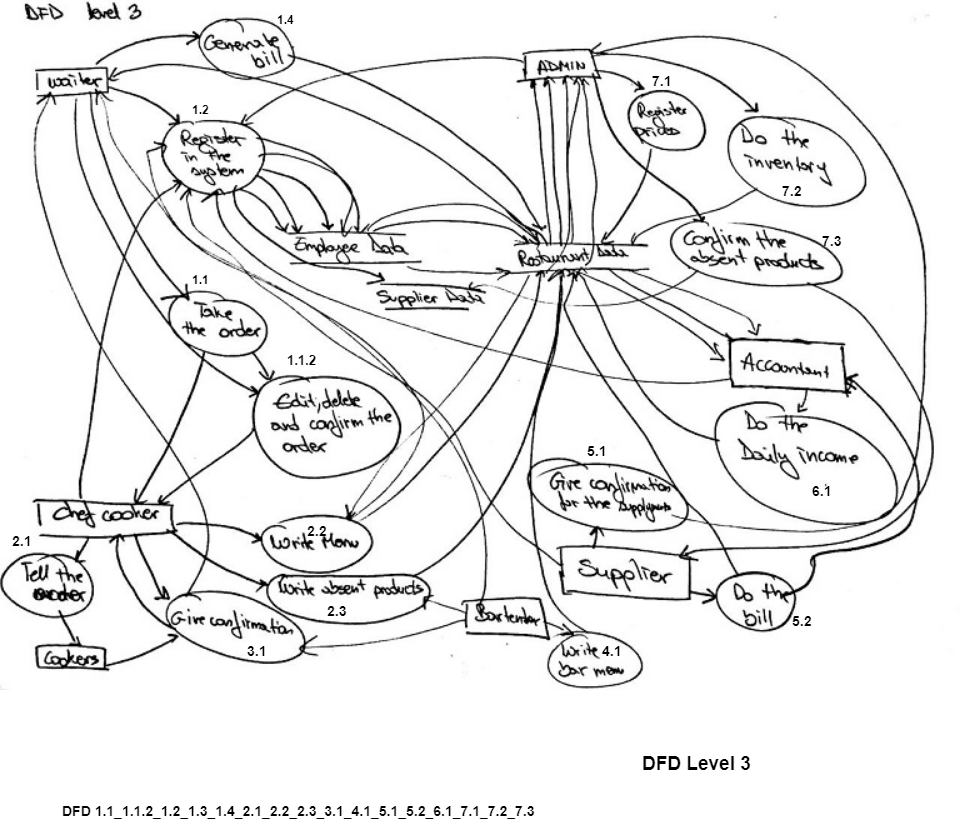 DFD level 3
1.4
Generate
bill
waiter
ADMIN
7.1
Register
prices
1.2
Register
in the
system
Do the
inventory
7.2
Employee Data
Restaurant Data
Confirm the
absent products
7.3
Supplier Data
1.1
Take
the order
1.1.2
Edit, delete
and confirm the
order
Accountant
Do the
Daily income
6.1
5.1
Give confirmation
for the supplyments
Chef cooker
2.2
Write Menu
2.1
Tell the
order
Supplier
Write absent products
2.3
Do the
bill
5.2
Bartender
Give confirmation
3.1
Cookers
Write 4.1
bar menu
DFD Level 3
DFD 1.1_1.1.2_1.2_1.3_1.4_2.1_2.2_2.3_3.1_4.1_5.1_5.2_6.1_7.1_7.2_7.3